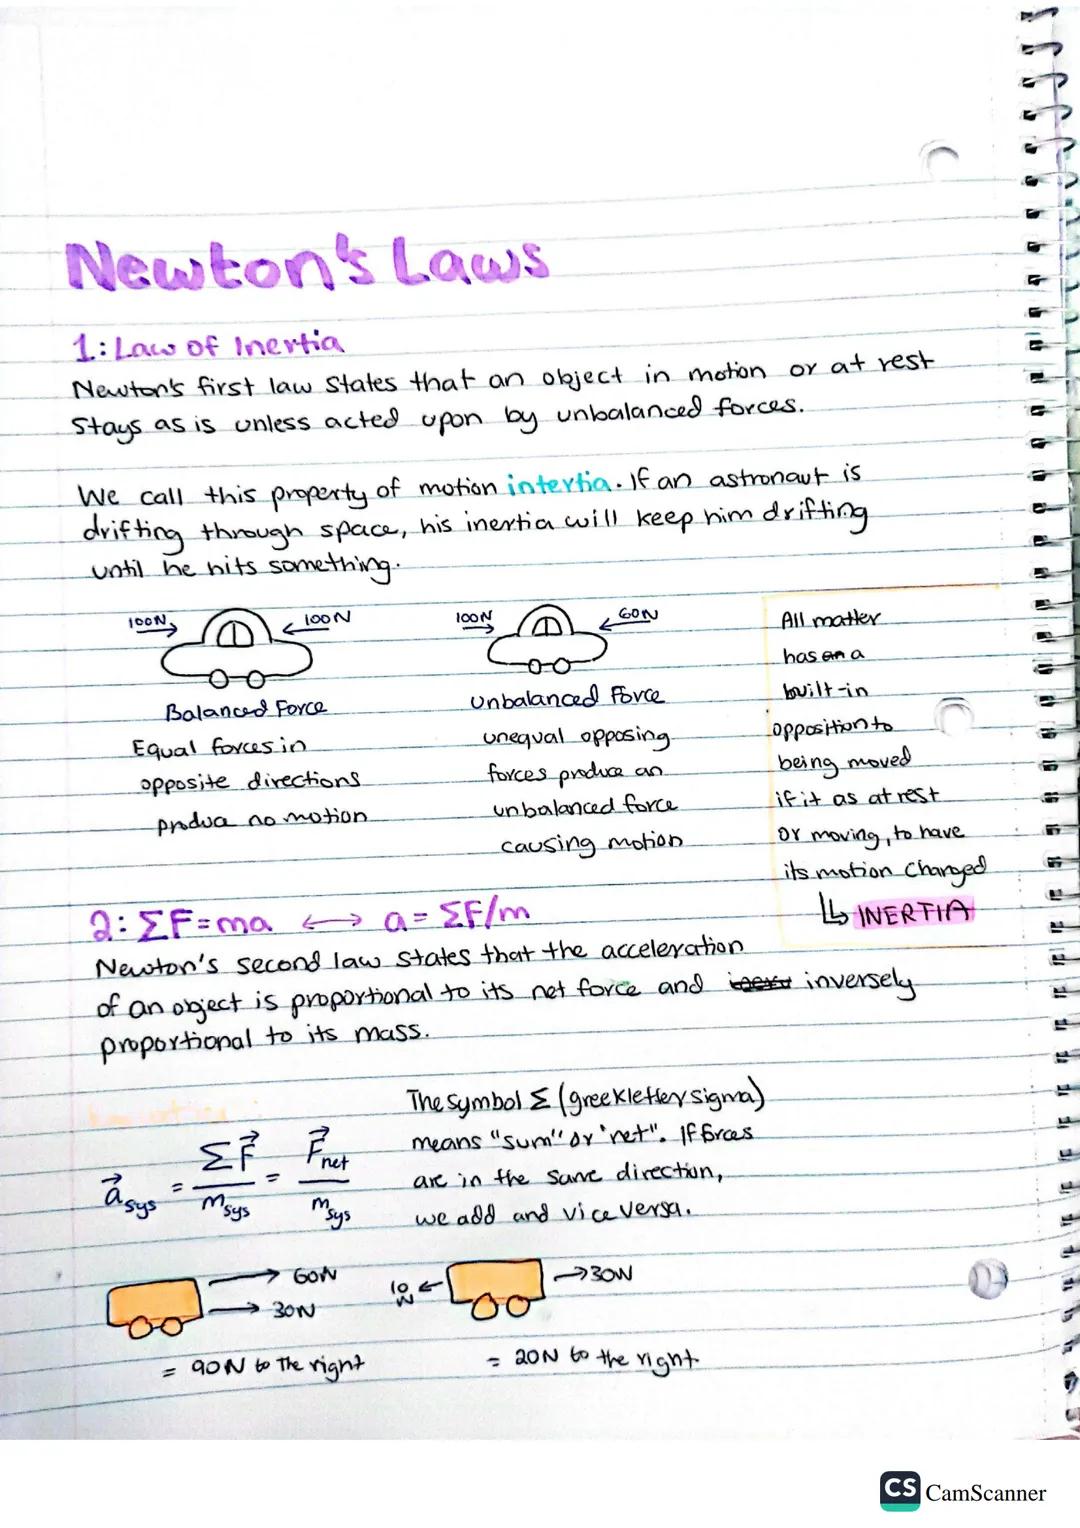 Newton's Laws
1: Law of Inertia
Newton's first law states that an object in motion or at rest
stays as is unless acted upon by unbalanced forces.
We call this property of motion intertia. If an astronaut is
drifting through space, his inertia will keep him drifting
until he hits something.
100N 100N
Balanced Force
Equal forces in
opposite directions
produa no motion
100N 60N
Unbalanced Force
unequal opposing
forces produce an
unbalanced force
causing motion
All matter
has an a
built-in
opposition to
being moved
if it as at rest
or moving, to have
its motion changed
↳ INERTIA
2: ΣF=ma ⟷ a= ΣF/m
Newton's second law states that the acceleration
of an object is proportional to its net force and inversely
proportional to its mass.
The symbol Σ (greek letter sigma)
means "sum" or 'net". If forces
are in the same direction,
we add and vice versa.
a⃗sys = ΣF⃗/msys = F⃗net/msys
→ 60N
→ 30N
= 90N to the right
10N ← → 30N
= 20N to the right
CS CamScanner